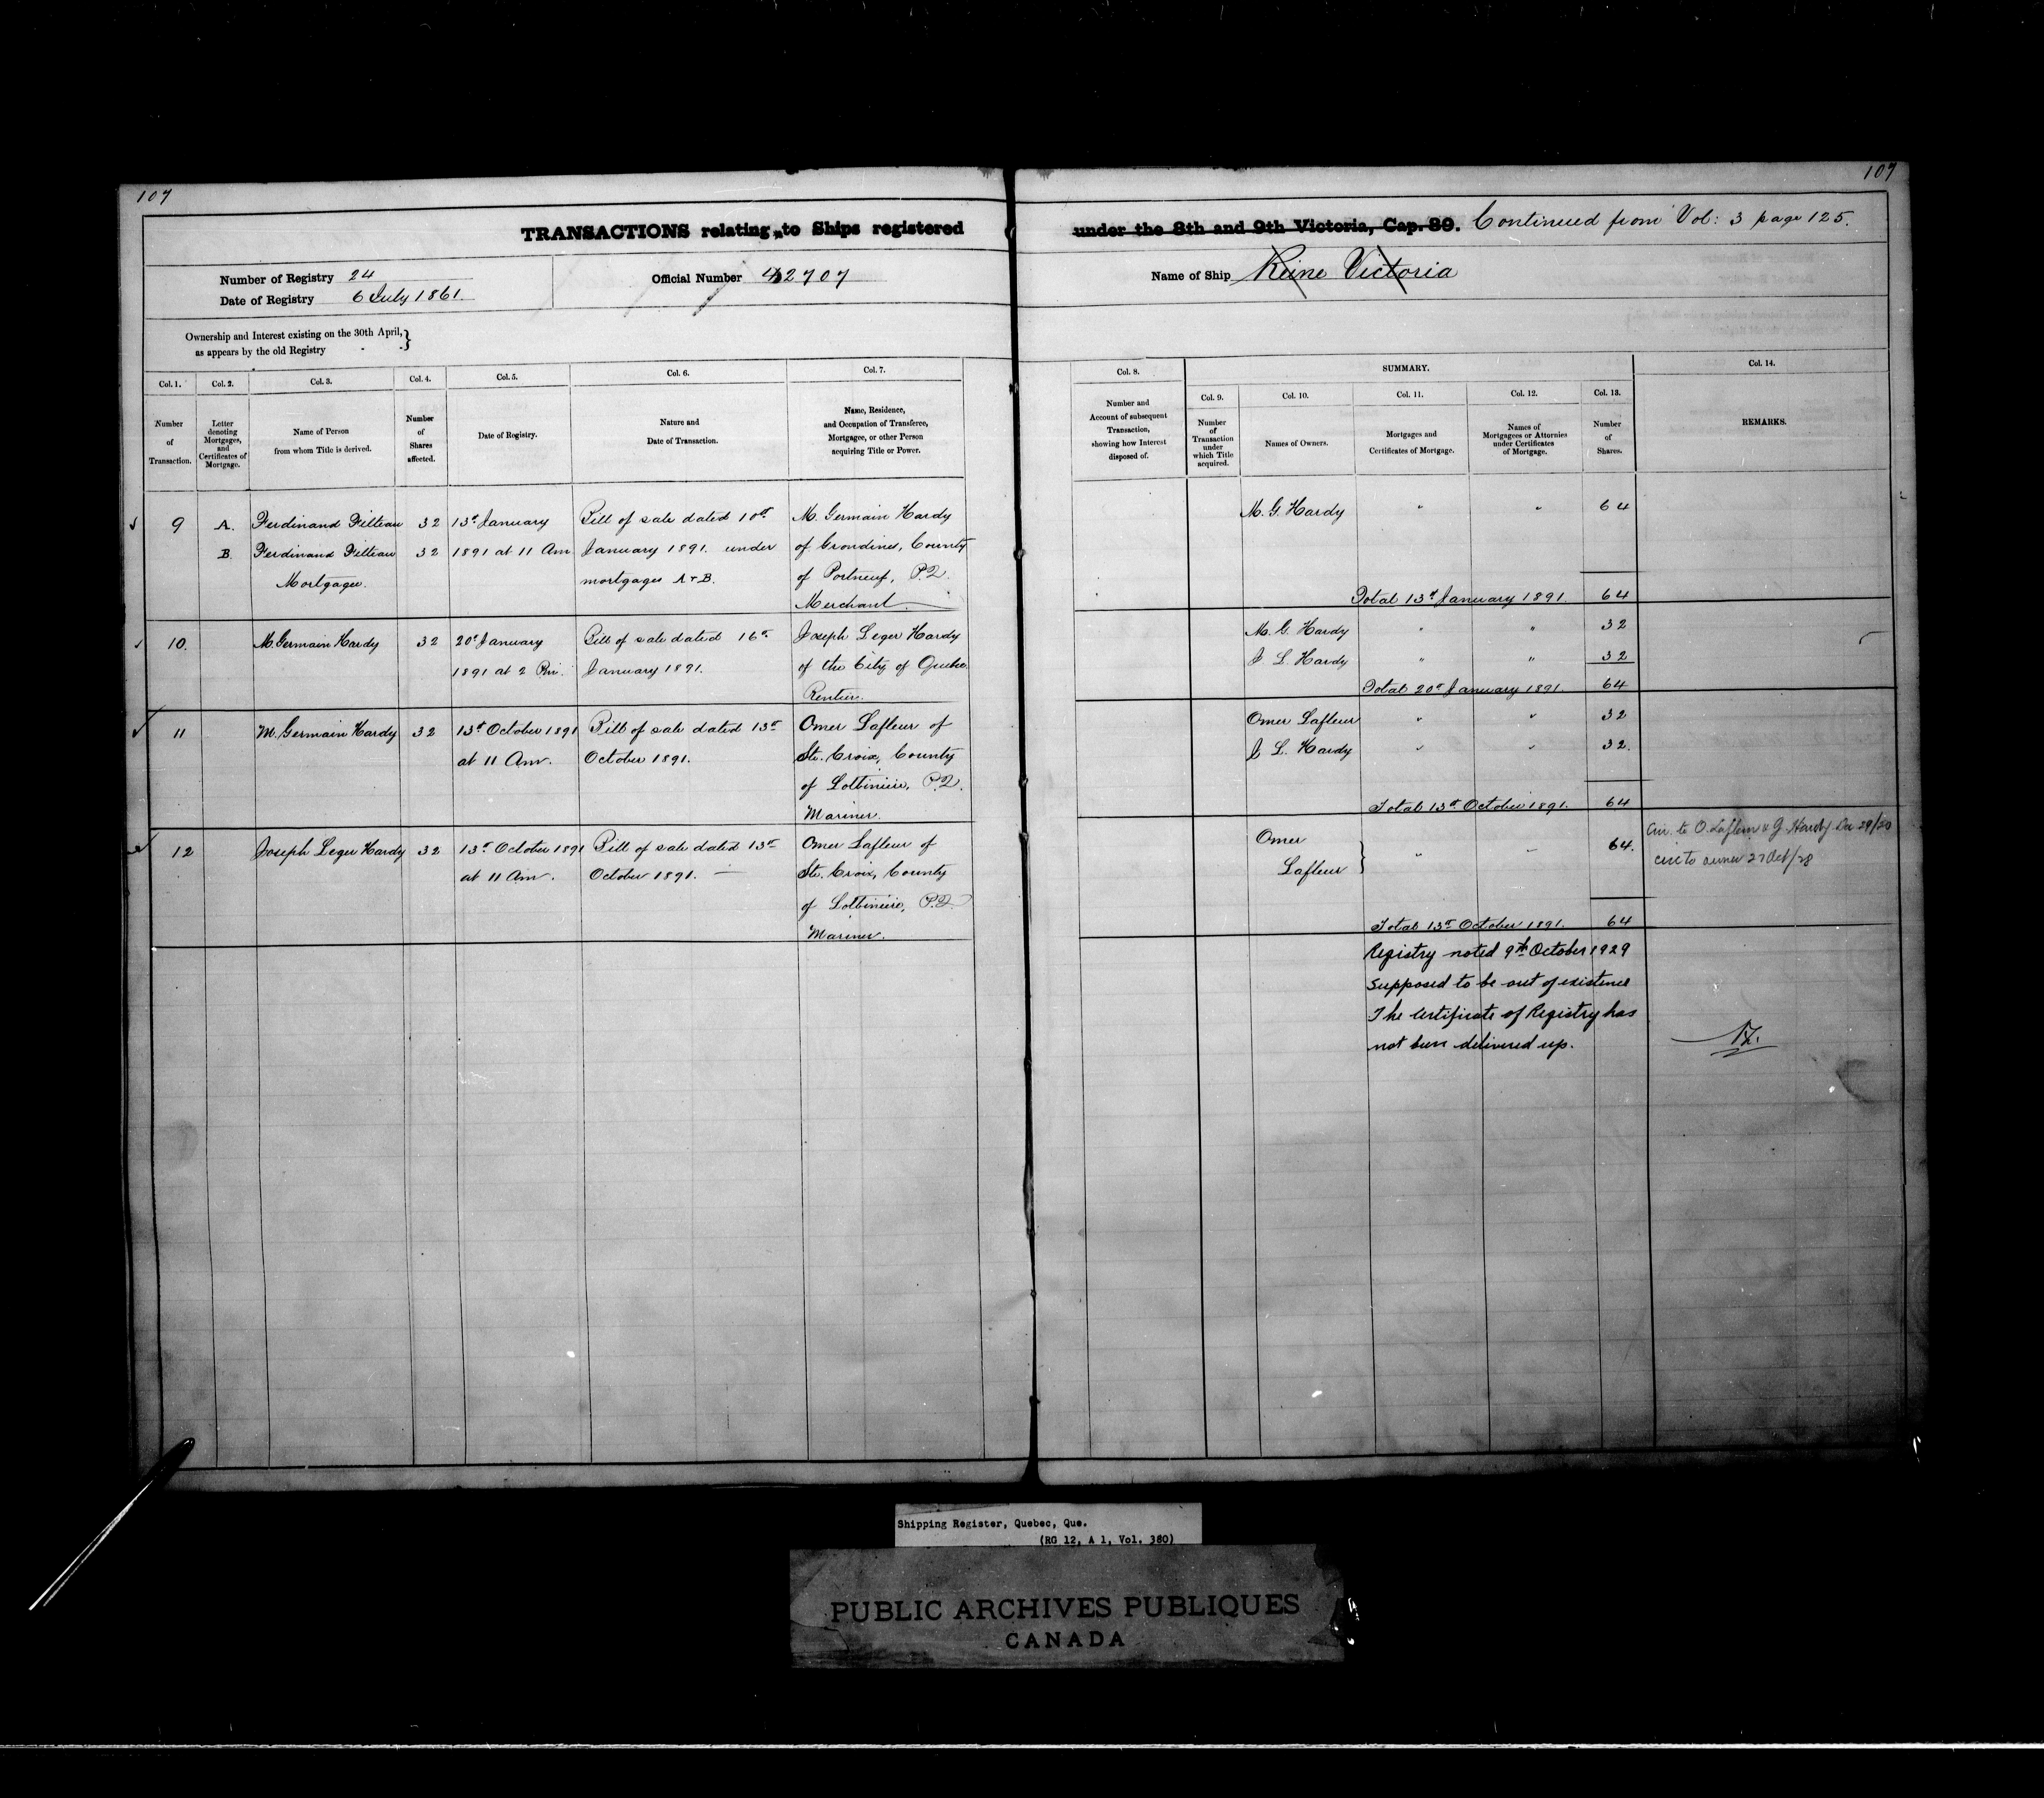 107
107
TRANSACTIONS relating to Ships registered under the 8th and 9th Victoria, Cap. 89. Continued from Vol: 3 page 125.
Number of Registry 24
Date of Registry 6 July 1861.
Official Number 42707
Name of Ship Reine Victoria
Ownership and Interest existing on the 30th April,
as appears by the old Registry
Col. 1.
Number
of
Transaction.
Col. 2.
Letter
denoting
Mortgages,
and
Certificates of
Mortgage.
Col. 3.
Name of Person
from whom Title is derived.
Col. 4.
Number
of
Shares
affected.
Col. 5.
Date of Registry.
Col. 6.
Nature and
Date of Transaction.
Col. 7.
Name, Residence,
and Occupation of Transferee,
Mortgagee, or other Person
acquiring Title or Power.
Col. 8.
Number and
Account of subsequent
Transaction,
showing how Interest
disposed of.
SUMMARY.
Col. 9.
Number
of
Transaction
under
which Title
acquired.
Col. 10.
Names of Owners.
Col. 11.
Mortgages and
Certificates of Mortgage.
Col. 12.
Names of
Mortgagees or Attornies
under Certificates
of Mortgage.
Col. 13.
Number
of
Shares.
Col. 14.
REMARKS.
9 A. Ferdinand Filteau 32 13th January Bill of sale dated 10th M. Germain Hardy
B. Ferdinand Filteau 32 1891 at 11 Am. January 1891. under of Grondines, County
Mortgagee. mortgages A+B. of Portneuf, P.Q.
Merchant.
M. G. Hardy " " 64
Total 13th January 1891. 64
10. M. Germain Hardy 32 20th January Bill of sale dated 16th Joseph Leger Hardy
1891 at 2 Pm. January 1891. of the City of Quebec.
Rentier.
M. G. Hardy " " 32
J L. Hardy " " 32
Total 20th January 1891. 64
11 M. Germain Hardy 32 13th October 1891 Bill of sale dated 13th Omer Lafleur of
at 11 Am. October 1891. Ste. Croix, County
of Lotbiniere, P.Q.
Mariner.
Omer Lafleur " " 32
J L. Hardy " " 32.
Total 13th October 1891. 64
12 Joseph Leger Hardy 32 13th October 1891 Bill of sale dated 13th Omer Lafleur of
at 11 Am. October 1891. Ste. Croix, County
of Lotbiniere, P.Q.
Mariner.
Omer
Lafleur } " " 64.
Total 13th October 1891. 64
Cir. to O. Lafleur & G. Hardy Dec 29/20
cir to owner 27 Oct/28
Registry noted 9th October 1929
Supposed to be out of existence
The Certificate of Registry has
not been delivered up.
Shipping Register, Quebec, Que.
(RG 12, A 1, Vol. 380)
PUBLIC ARCHIVES PUBLIQUES
CANADA